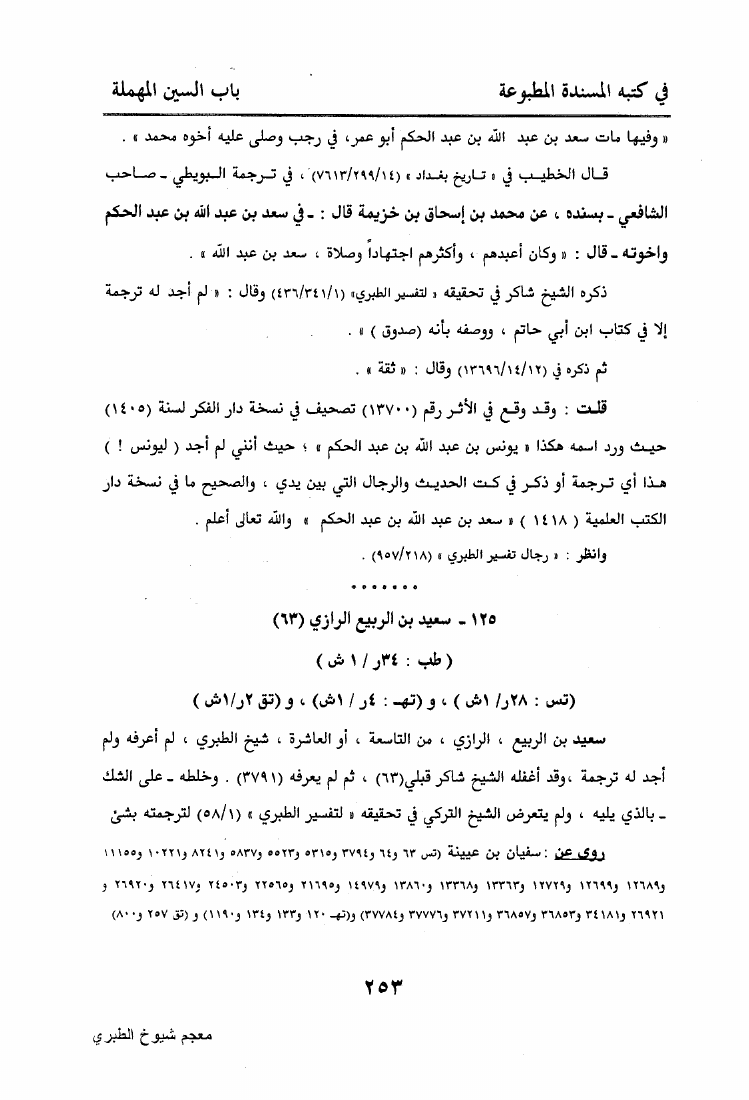 في كتبه المسندة المطبوعة
باب السين المهملة
« وفيها مات سعد بن عبد الله بن عبد الحكم أبو عمر، في رجب وصلى عليه أخوه محمد » .
قال الخطيب في « تاريخ بغداد » (٧٦١٣/٢٩٩/١٤) ، في ترجمة البويطي ـ صاحب
الشافعي ـ بسنده ، عن محمد بن إسحاق بن خزيمة قال : ـ في سعد بن عبد الله بن عبد الحكم
واخوته ـ قال : « وكان أعبدهم ، وأكثرهم اجتهاداً وصلاة ، سعد بن عبد الله » .
ذكره الشيخ شاكر في تحقيقه « لتفسير الطبري» (٤٣٦/٣٤١/١) وقال : « لم أجد له ترجمة
إلا في كتاب ابن أبي حاتم ، ووصفه بأنه (صدوق ) » .
ثم ذكره في (١٣٦٩٦/١٤/١٢) وقال : « ثقة » .
قلت : وقد وقع في الأثر رقم (١٣٧٠٠) تصحيف في نسخة دار الفكر لسنة (١٤٠٥)
حيث ورد اسمه هكذا « يونس بن عبد الله بن عبد الحكم » ؛ حيث أنني لم أجد ( ليونس ! )
هذا أي ترجمة أو ذكر في كت الحديث والرجال التي بين يدي ، والصحيح ما في نسخة دار
الكتب العلمية ( ١٤١٨ ) « سعد بن عبد الله بن عبد الحكم » والله تعالى أعلم .
وانظر : « رجال تفسير الطبري » (٩٥٧/٢١٨) .
.......
١٢٥ ـ سعيد بن الربيع الرازي (٦٣)
( طب : ٣٤ر / ١ ش )
(تس : ٢٨ر/ ١ش ) ، و (تهـ : ٤ر / ١ش) ، و (تق ٢ر/١ش )
سعيد بن الربيع ، الرازي ، من التاسعة ، أو العاشرة ، شيخ الطبري ، لم أعرفه ولم
أجد له ترجمة ،وقد أغفله الشيخ شاكر قبلي(٦٣) ، ثم لم يعرفه (٣٧٩١) . وخلطه ـ على الشك
ـ بالذي يليه ، ولم يتعرض الشيخ التركي في تحقيقه « لتفسير الطبري » (٥٨/١) لترجمته بشئ
روى عن : سفيان بن عيينة (تس ٦٣ و٦٤ و٣٧٩٤ و٥٣١٥ و٥٥٢٣ و٥٨٣٧ و٨٢٤١ و١٠٢٢١ و١١١٥٥
و١٢٦٨٩ و١٢٦٩٩ و١٢٧٢٩ و١٣٣٦٣ و١٣٣٦٨ و١٣٨٦٠ و١٤٩٧٩ و٢١٦٩٥ و٢٢٥٦٥ و٢٤٥٠٣ و٢٦٤١٧ و٢٦٩٢٠ و
٢٦٩٢١ و٣٤١٨١ و٣٦٨٥٣ و٣٦٨٥٧ و٣٧٢١١ و٣٧٧٧٦ و٣٧٧٨٤) و(تهـ ١٢٠ و١٣٣ و١٣٤ و١١٩٠) و (تق ٢٥٧ و٨٠٠)
٢٥٣
معجم شيوخ الطبري